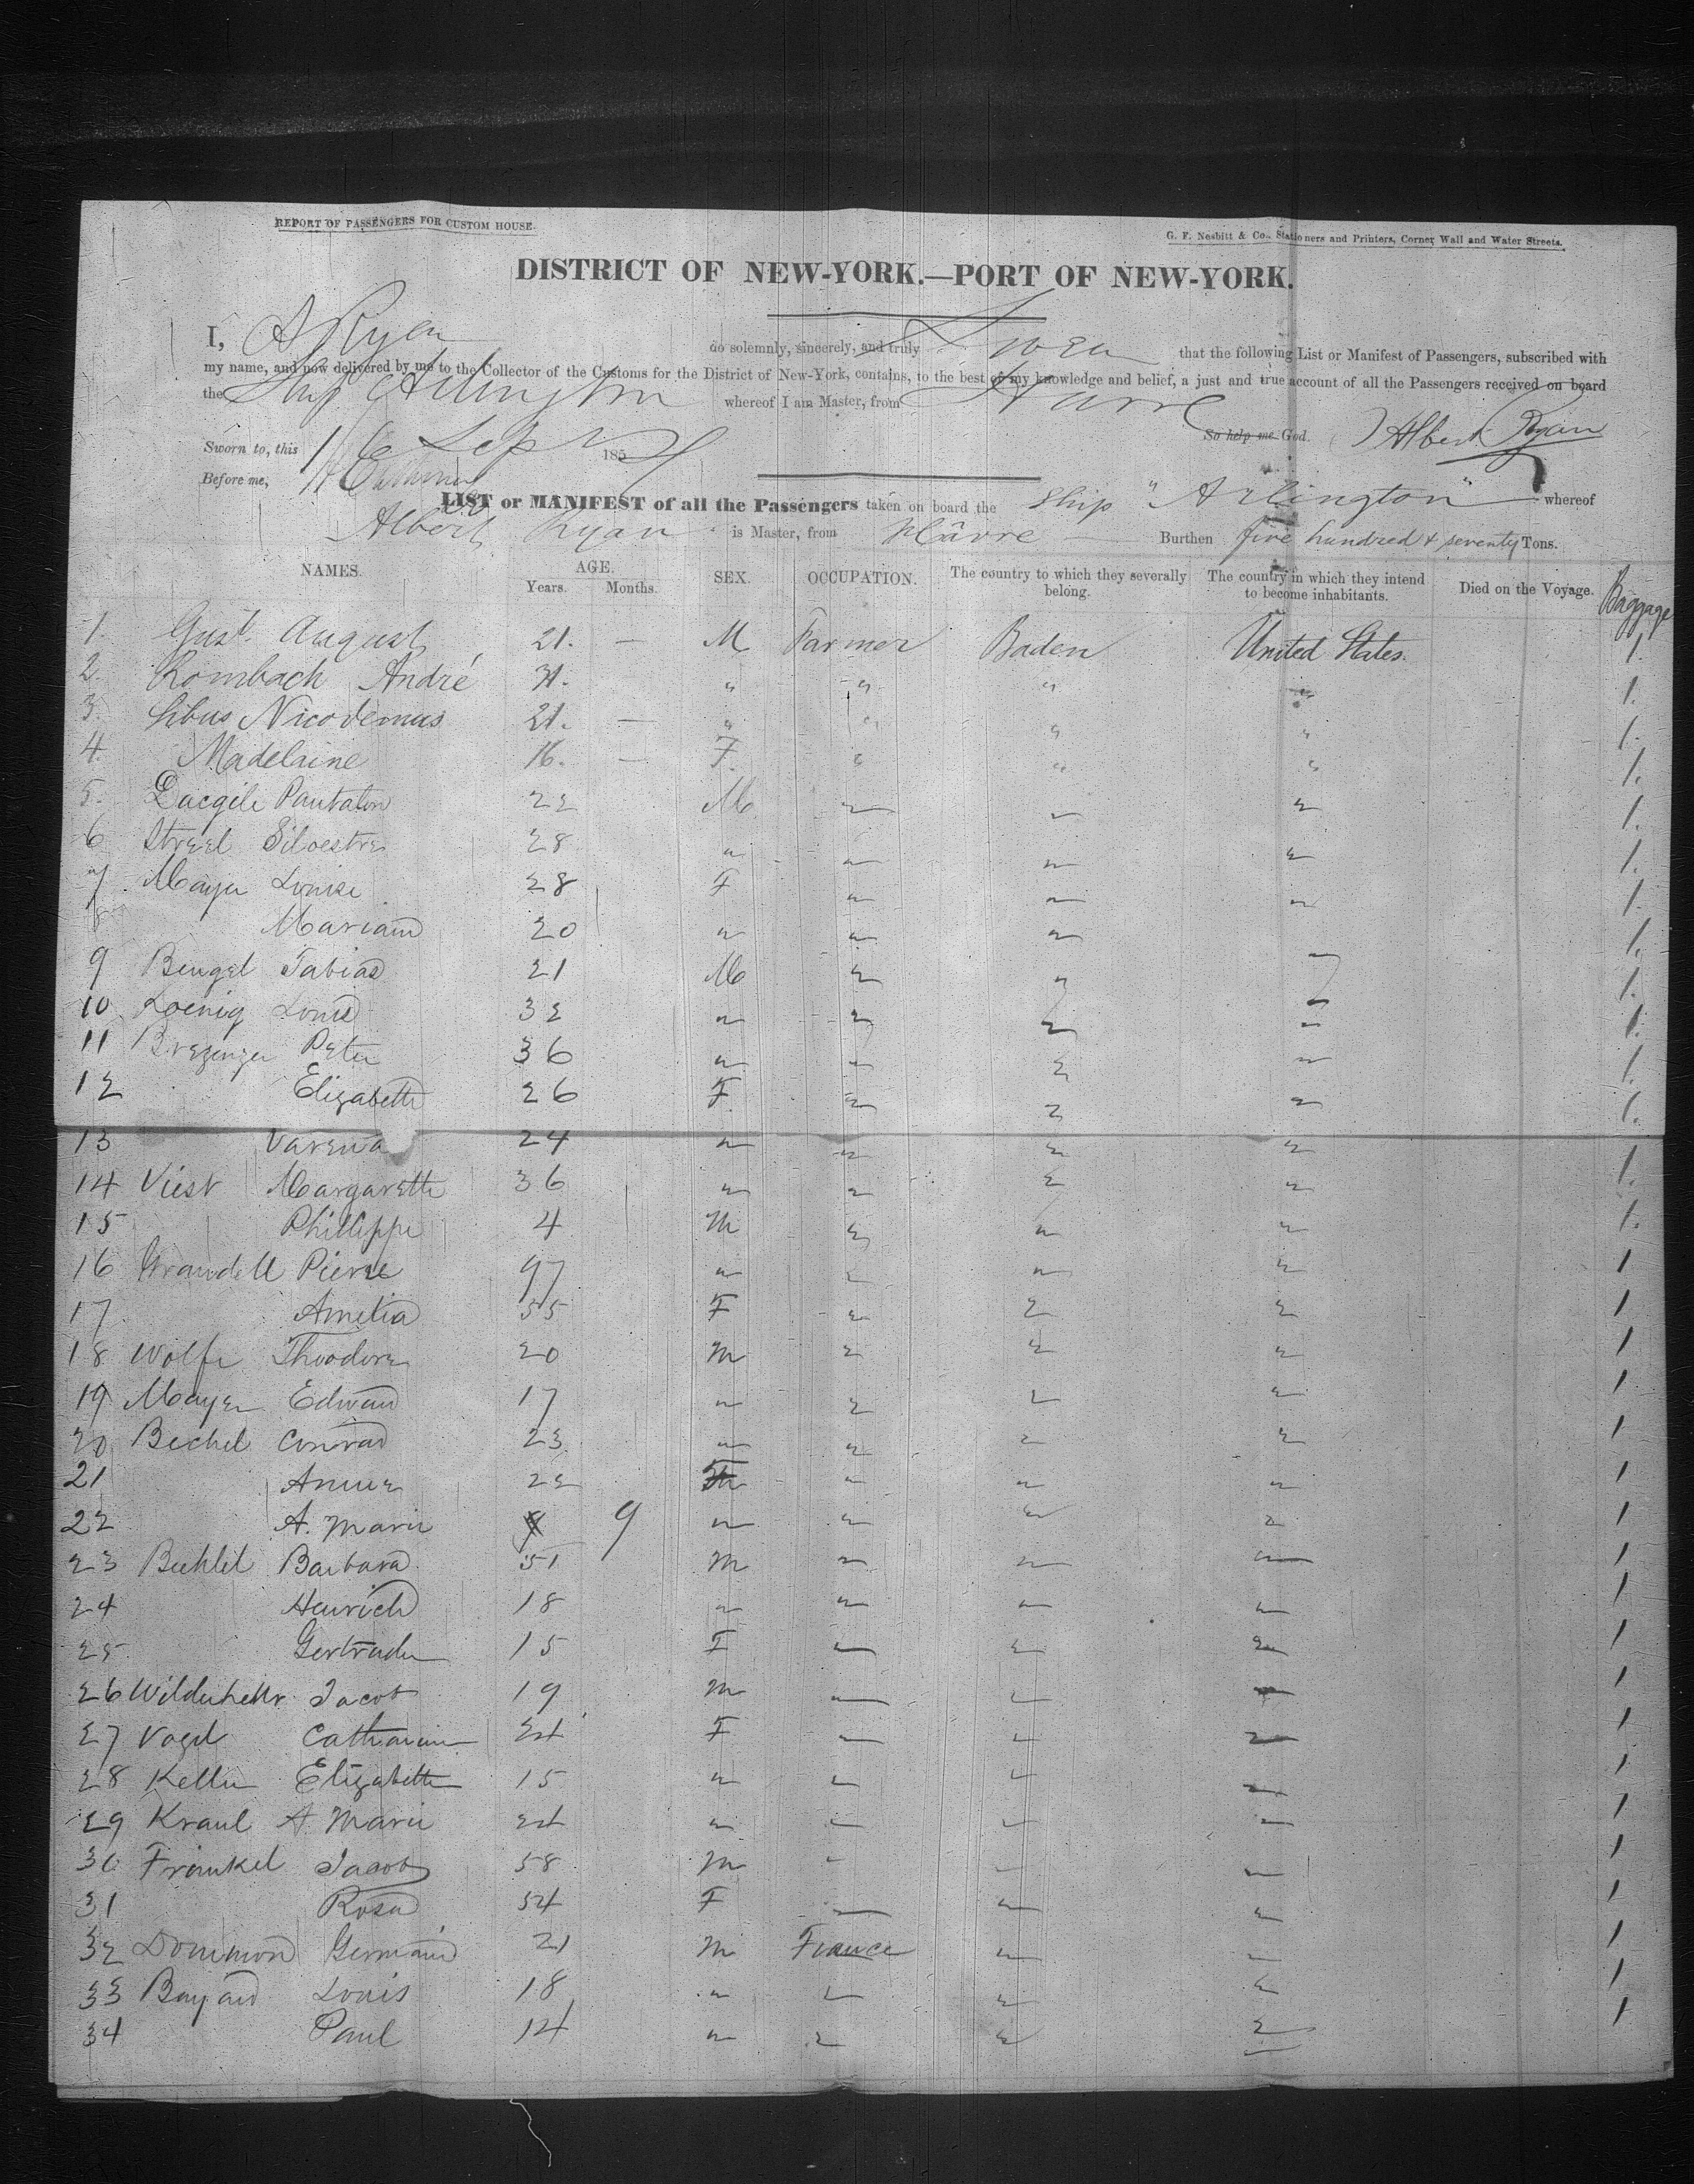 REPORT OF PASSENGERS FOR CUSTOM HOUSE.
G. F. Nesbitt & Co., Stationers and Printers, Corner Wall and Water Streets.
DISTRICT OF NEW-YORK.—PORT OF NEW-YORK.
I, A Ryan do solemnly, sincerely, and truly Swear that the following List or Manifest of Passengers, subscribed with
my name, and now delivered by me to the Collector of the Customs for the District of New-York, contains, to the best of my knowledge and belief, a just and true account of all the Passengers received on board
the Ship Arlington whereof I am Master, from Havre
Sworn to, this 16 Sep 185 So help me God. Albert Ryan
Before me,
LIST or MANIFEST of all the Passengers taken on board the Ship "Arlington" whereof
Albert Ryan is Master, from Hâvre Burthen five hundred & seventy Tons.
NAMES. AGE. Years. Months. SEX. OCCUPATION. The country to which they severally belong. The country in which they intend to become inhabitants. Died on the Voyage. Baggage
1. Gust. August 21. — M Farmer Baden United States. 1.
2. Rombach André 31. " " " " 1.
3. Libus Nicodemus 21. — " " " " 1.
4. Madelaine 16. — F. " " " 1.
5. Pantalon 22 M " " " 1.
6 Streel Silvestre 28 " " " " 1.
7. Mayer Louise 28 F " " " 1.
8 Mariand 20 " " " " 1.
9 Bengel Tabias 21 M " " " 1.
10. Koenig Louis 32 " " " " 1.
11 Brezenger Peter 36 " " " " 1.
12 Elizabeth 26 F. " " " 1.
13 Varena 24 " " " " 1.
14 Viest Margarette 36 " " " " 1.
15 Phillippe 4 M " " " 1.
16 Grandell Pierre " " " " 1
17 Amelia 55 F " " " 1
18 Wolfe Theodore 20 M " " " 1
19 Mayer Edward 17 " " " " 1
20 Bechel Conrad 23 " " " " 1
21 Anne 22 F " " " 1
22 A. Marie 9 " " " " 1
23 Barbara 51 M " " " 1
24 Heinrich 18 " " " " 1
25 Gertrude 15 F " " " 1
26 Jacob 19 M " " " 1
27 Vogel Catharine 24 F " " " 1
28 Keller Elizabeth 15 " " " " 1
29 Kraul A Marie 24 " " " " 1
30 Frankel Jacob 58 M " " " 1
31 Rosa 54 F " " " 1
32 Dommon Germain 21 M France " " 1
33 Bayard Louis 18 " " " " 1
34 Paul 14 " " " " 1